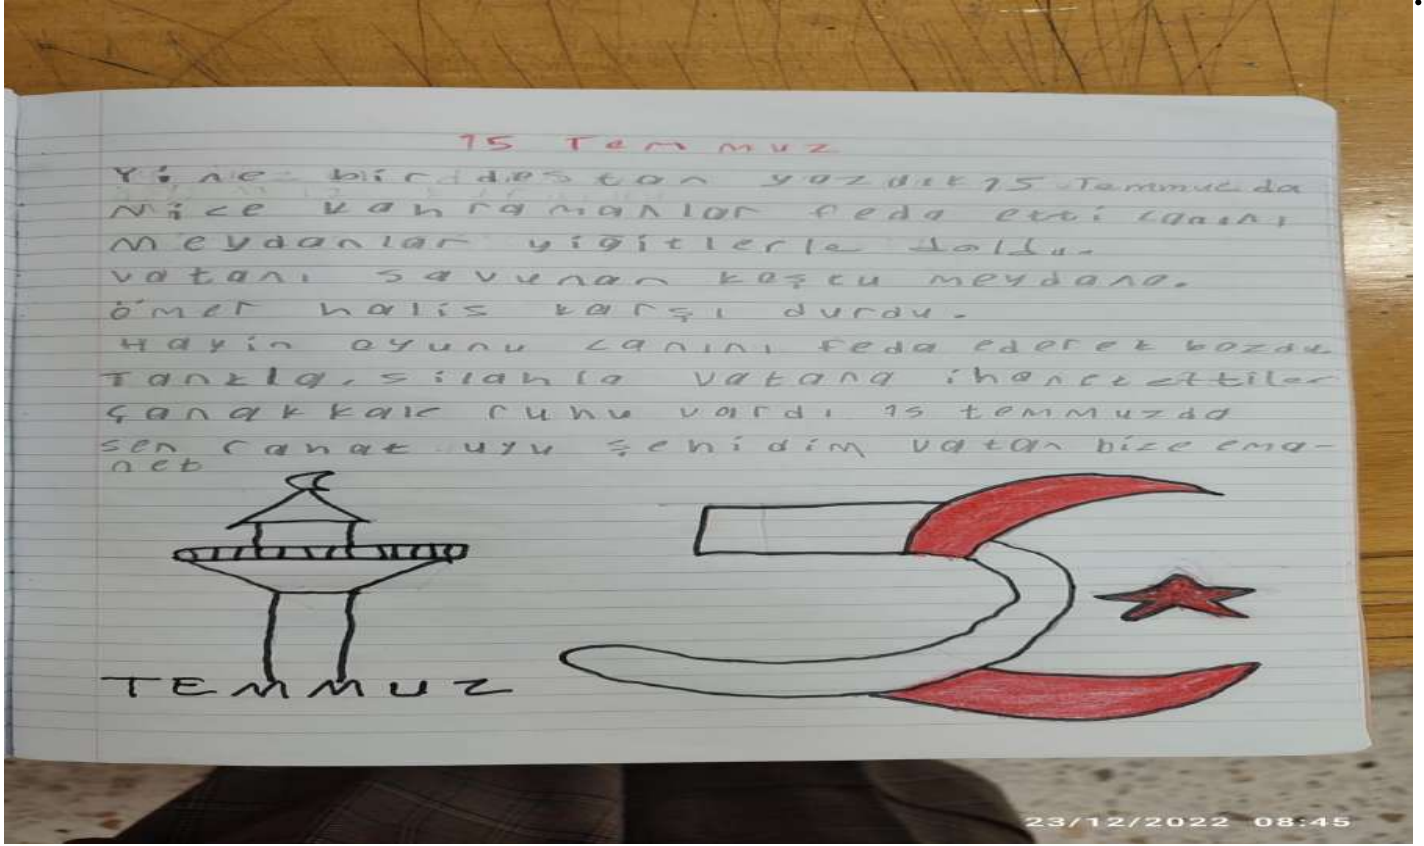 15 Temmuz
Yine bir destan yazdık 15 Temmuz da
Nice kahramanlar feda etti canını
Meydanlar yiğitlerle doldu.
Vatanı savunan koştu meydana.
Ömer halis karşı durdu.
Hayin oyunu canını feda ederek bozdu
Tankla, silahla vatana ihanet ettiler
Çanakkale ruhu vardı 15 temmuzda
sen rahat uyu şehidim vatan bize ema-
net
TEMMUZ
23/12/2022 08:45